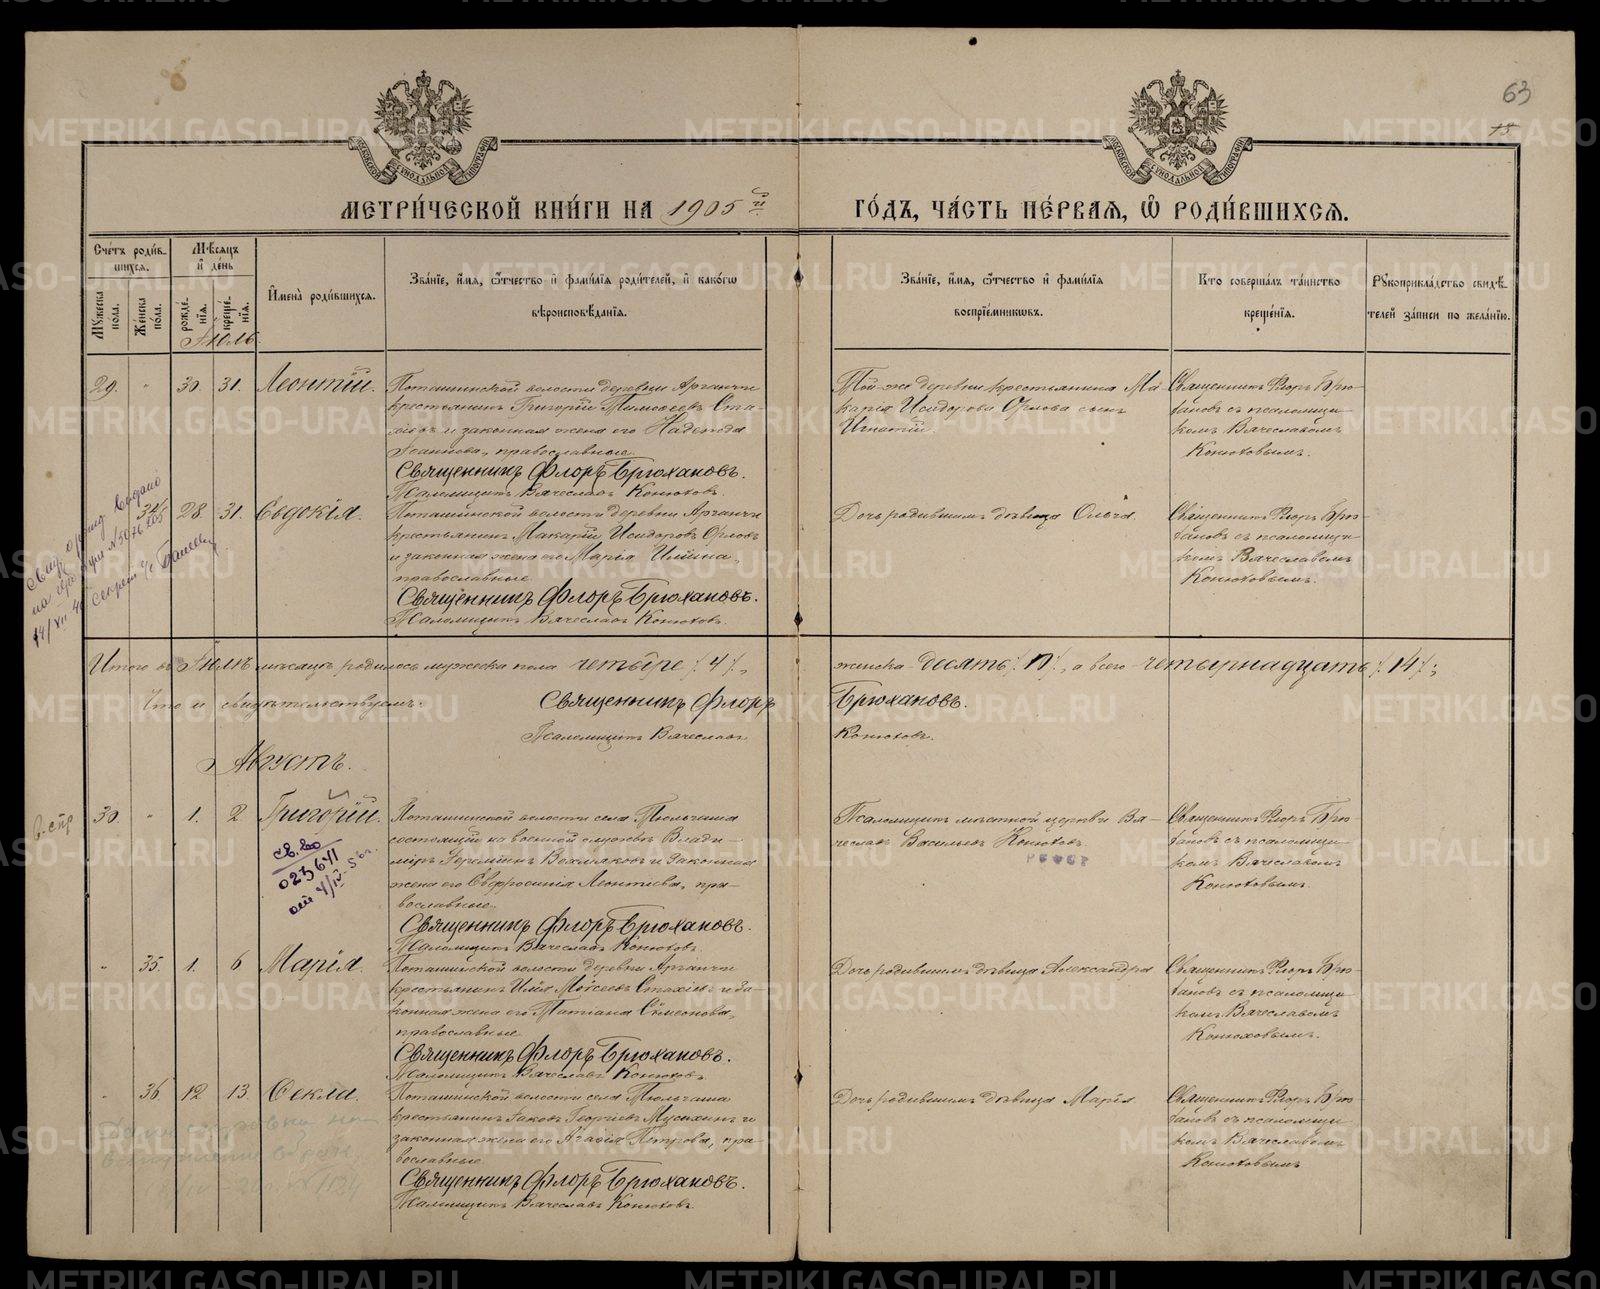 63
15
МОСКОВСКОЙ СѴНОДАЛЬНОЙ ТИПОГРАФІИ
МОСКОВСКОЙ СѴНОДАЛЬНОЙ ТИПОГРАФІИ
МЕТРИ́ЧЕСКОЙ КНИ́ГИ НА 1905й ГО́ДЪ, ЧА́СТЬ ПЕ́РВАѦ, Ѡ҆ РОДИ́ВШИХСѦ.
Сче́тъ роди́в-
шихся.
Мꙋжеска по́ла.
Же́нска по́ла.
Мѣ́сяцъ
и҆ де́нь
рожде́-
нїя.
креще́-
нїя.
И҆мена̀ роди́вшихся.
Зва́нїе, и҆́мя, ѻ҆́тчество и҆ фами́лїя роди́телей, и҆ како́гѡ
вѣроисповѣ́данїя.
Зва́нїе, и҆́мя, ѻ҆́тчество и҆ фами́лїя
воспрїе́мникѡвъ.
Кто соверша́лъ та́инство
креще́нїя.
Рꙋкоприкла́дство свидѣ́-
телей за́писи по жела́нїю.
Іюль.
29. " 30. 31. Леонтій.
Поташинской волости деревни Арганчи
крестьянинъ Григорій Тимоѳеевъ Ста-
хіевъ и законная жена его Надежда
Іоаннова, православные.
Священникъ Флоръ Брюхановъ.
Псаломщикъ Вячеславъ Конюховъ.
Той-же деревни крестьянина Ма-
карія Исидорова Орлова сынъ
Игнатій.
Священникъ Флоръ Брю-
хановъ съ псаломщи-
комъ Вячеславомъ
Конюховымъ.
34. 28. 31. Евдокія.
Поташинской волости деревни Арганчи
крестьянинъ Макарій Исидоровъ Орловъ
и законная жена его Марія Ильина,
православные.
Священникъ Флоръ Брюхановъ.
Псаломщикъ Вячеславъ Конюховъ.
Дочь родившимъ дѣвица Ольга.
Священникъ Флоръ Брю-
хановъ съ псаломщи-
комъ Вячеславомъ
Конюховымъ.
Итого въ Іюлѣ мѣсяцѣ родилось мужеска пола четыре /4/, женска десять /10/, а всего четырнадцать /14/;
Что и свидѣтельствуемъ: Священникъ Флоръ Брюхановъ.
Псаломщикъ Вячеславъ Конюховъ.
Августъ.
30. " 1. 2. Григорій.
Поташинской волости села Тюльгаша
состоящій на военной службѣ Влади-
міръ
и законная
жена его Евфросинія Леонтіева, пра-
вославные.
Священникъ Флоръ Брюхановъ.
Псаломщикъ Вячеславъ Конюховъ.
Псаломщикъ мѣстной церкви Вя-
чеславъ Васильевъ Конюховъ.
Священникъ Флоръ Брю-
хановъ съ псаломщи-
комъ Вячеславомъ
Конюховымъ.
св-во
023641
" 35. 1. 6 Марія.
Поташинской волости деревни Арганчи
крестьянинъ Илія Моѵсеевъ Стахіевъ и за-
конная жена его Татіана Сѵмеонова,
православные.
Священникъ Флоръ Брюхановъ.
Псаломщикъ Вячеславъ Конюховъ.
Дочь родившимъ дѣвица Александра
Священникъ Флоръ Брю-
хановъ съ псаломщи-
комъ Вячеславомъ
Конюховымъ.
" 36. 12 13. Ѳекла.
Поташинской волости села Тюльгаша
крестьянинъ Іаковъ Георгіевъ Мусихинъ и
законная жена его Агаѳія Петрова, пра-
вославные.
Священникъ Флоръ Брюхановъ.
Псаломщикъ Вячеславъ Конюховъ.
Дочь родившимъ дѣвица Марія.
Священникъ Флоръ Брю-
хановъ съ псаломщи-
комъ Вячеславомъ
Конюховымъ.
METRIKI.GASO-URAL.RU